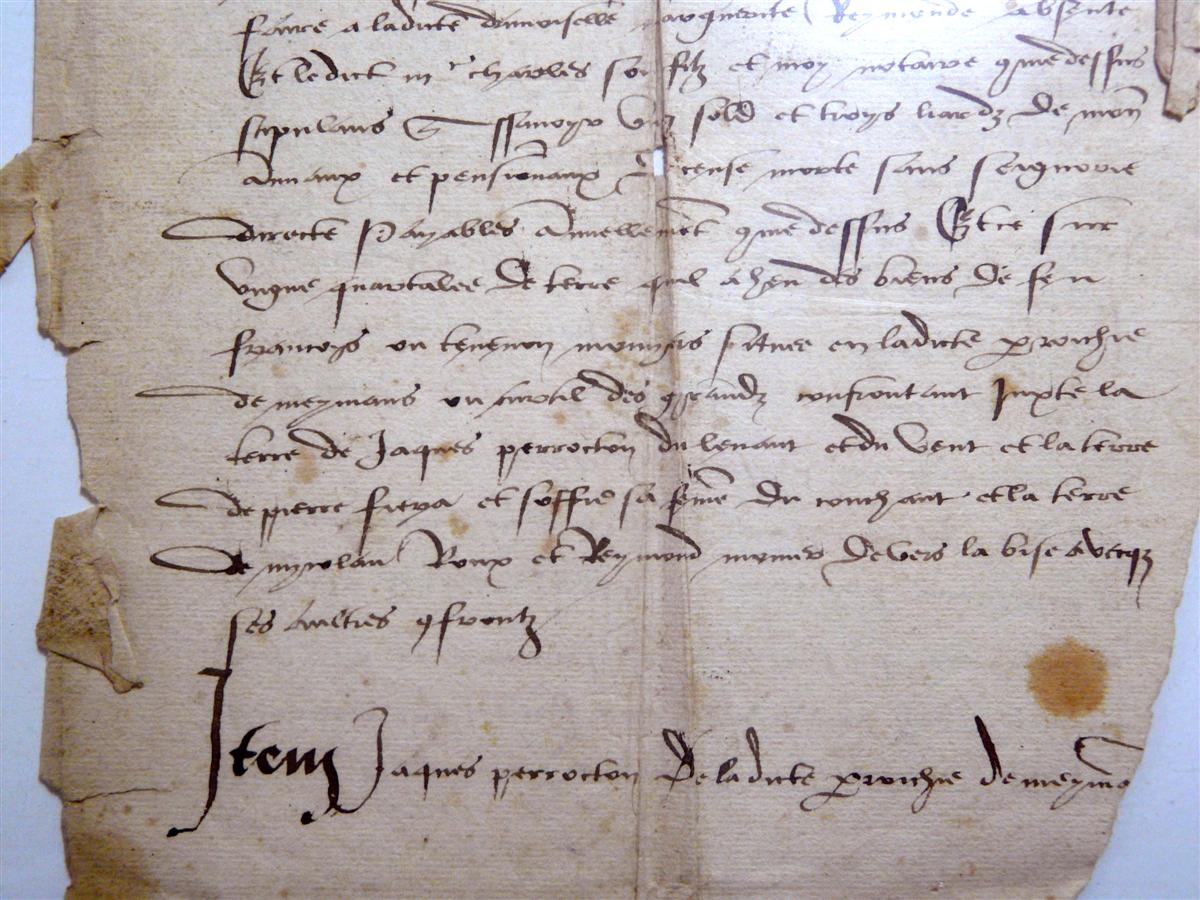 faire a ladicte damoiselle marguerite Reymonde absente
Et ledict mr charles son filz et moy notaire 9me dessus
stipulans Assavoyr ung sold et troys liardz de mon
Annaulx et pensionaux de cense morte sans seigneurie
directe Payables Annuellement 9me dessus Et ce sur
Vngne quartalee De terre quil a heu des biens De feu
francoys situee en ladicte parroichie
de meymans en curtil des grandz confrontant Juxte la
terre de Jaques perrocton du levant et du Vent et la terre
de pierre et soffie sa feme Du couchant et la terre
De nycolau Roux et Reymond monier Devers la bise avecq
ses aultres 9frontz
Item Jaques perrocton De ladicte parroichie de meyma